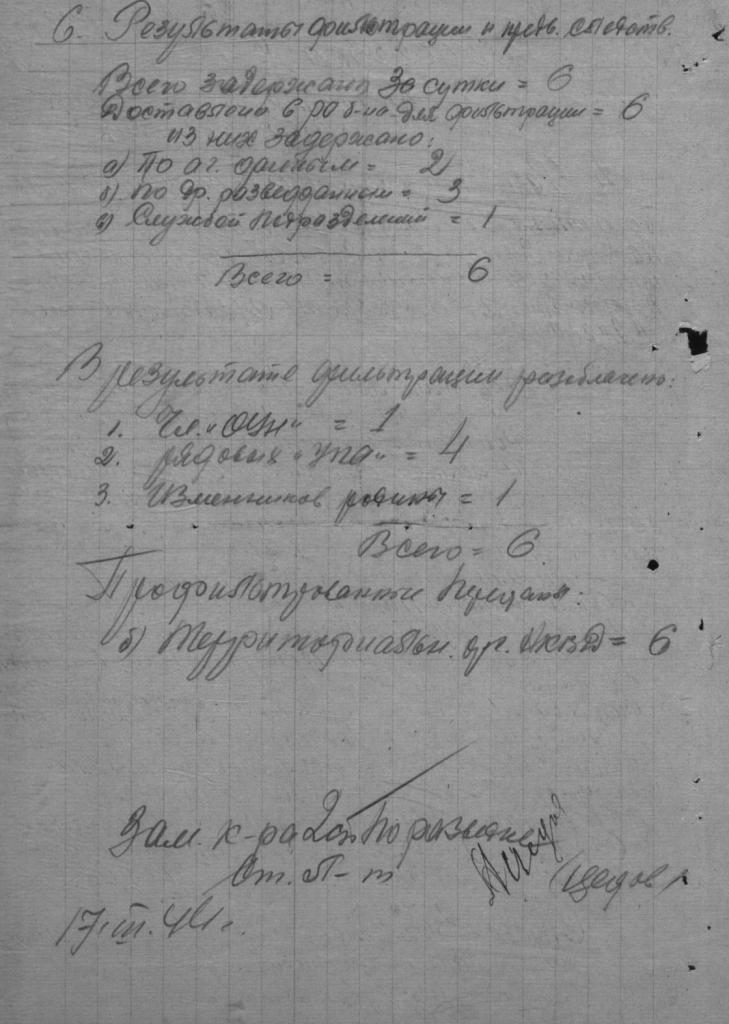 6. Результаты фильтрации и предв. следств.
Всего задержано за сутки = 6
Доставлено в раб-на для фильтрации = 6
из них задержано:
а) По аг. данным = 2
б) по др. разведданным = 3
в) Службой подразделений = 1
Всего = 6
В результате фильтрации разоблачено:
1. Чл. "ОУН" = 1
2. рядовых "УПА" = 4
3. Изменников родины = 1
Всего = 6
Профильтрованные переданы:
б) Территориальн. ор. НКВД = 6
Зам. к-ра 2сб по разведке
Ст. л-т
17.III.44г.